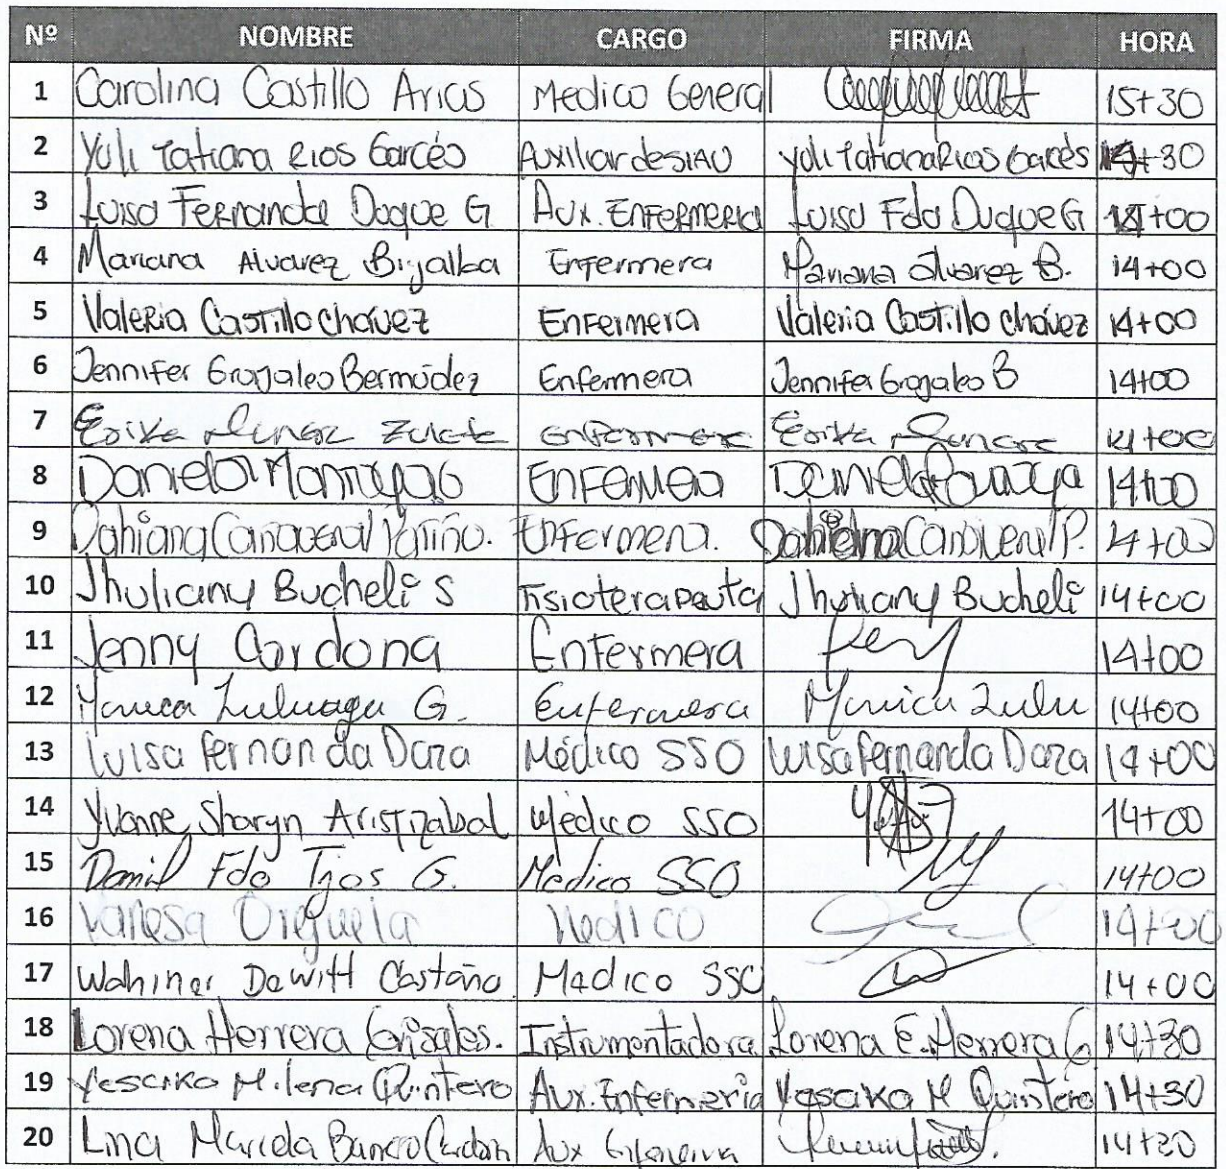 Nº NOMBRE CARGO FIRMA HORA
1 Carolina Castillo Arias Medico General 15+30
2 Yuli Tatiana Rios Garcés Auxiliar de SIAU Yuli Tatiana Rios Garcés 14+30
3 Luisa Fernanda Duque G. Aux. Enfermeria Luisa Fda Duque G +00
4 Mariana Alvarez Enfermera Mariana Alvarez B. 14+00
5 Valeria Castillo chávez Enfermera Valeria Castillo chávez 14+00
6 Jennifer Grajales Bermúdez Enfermera Jennifer Grajales B 14+00
7 Erika Enfermera Erika 14+00
8 Daniela Enfermera Daniela 14+00
9 Dahiana Cañaveral Patiño. Enfermera. Dahiana Cañaveral P. 14+00
10 Jhuliany Bucheli S Fisioterapeuta Jhuliany Bucheli 14+00
11 Jenny Cardona Enfermera Jeny 14+00
12 Monica Zuluaga G. Enfermera Monica Zulu 14+00
13 luisa fernanda Daza Médico SSO luisa fernanda Daza 14+00
14 Yvonne Sharyn Aristizabal Médico SSO 14+00
15 Fdo G. Médico SSO 14+00
16 Vanesa Orejuela Medico 14+00
17 Dewitt Castaño Medico SSO 14+00
18 Lorena Herrera Grisales. Instrumentadora Lorena E. Herrera G 14+30
19 Yesica Milena Quintero Aux. Enfermeria Yesica M Quintero 14+30
20 Lina Marcela Aux 14+20